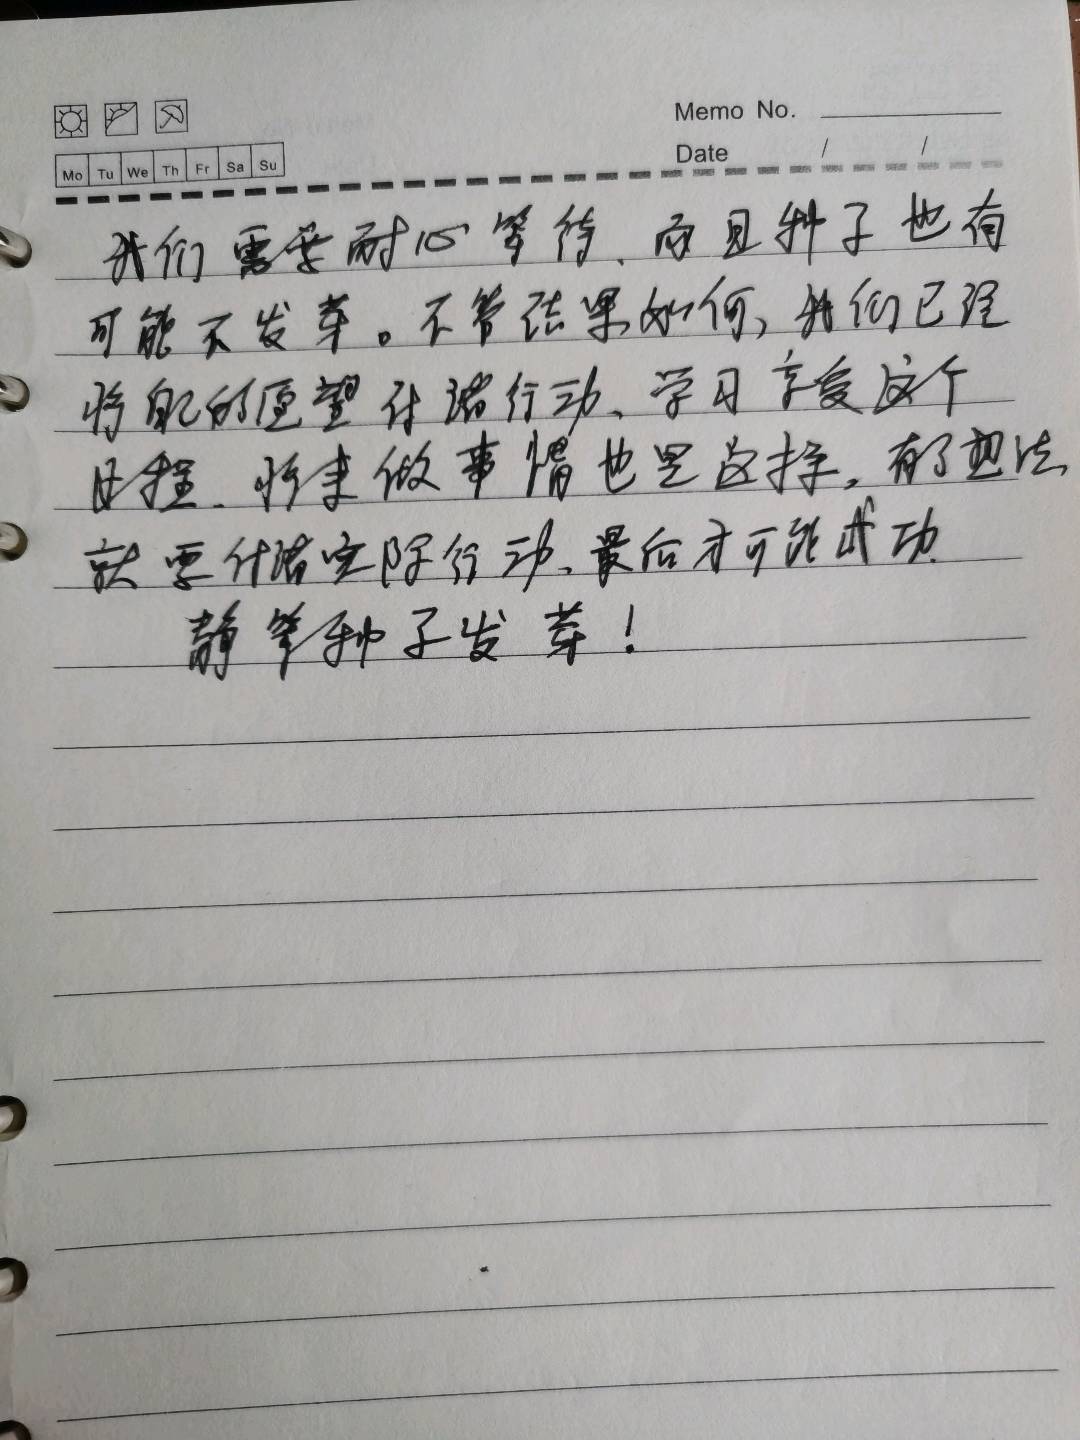 Memo No.
Date / /
Mo Tu We Th Fr Sa Su
我们需要耐心等待、而且种子也有
可能不发芽。不管结果如何,我们已经
将自己的愿望付诸行动、学习享受这个
过程.将来做事情也是这样,有了想法
就要付诸实际行动、最后才可能成功.
静等种子发芽!